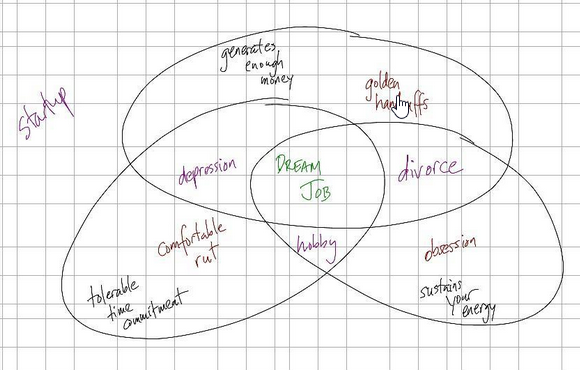 startup
generates
enough
money
golden
handcuffs
depression
DREAM
JOB
divorce
comfortable
rut
hobby
obsession
tolerable
time
commitment
sustains
your
energy